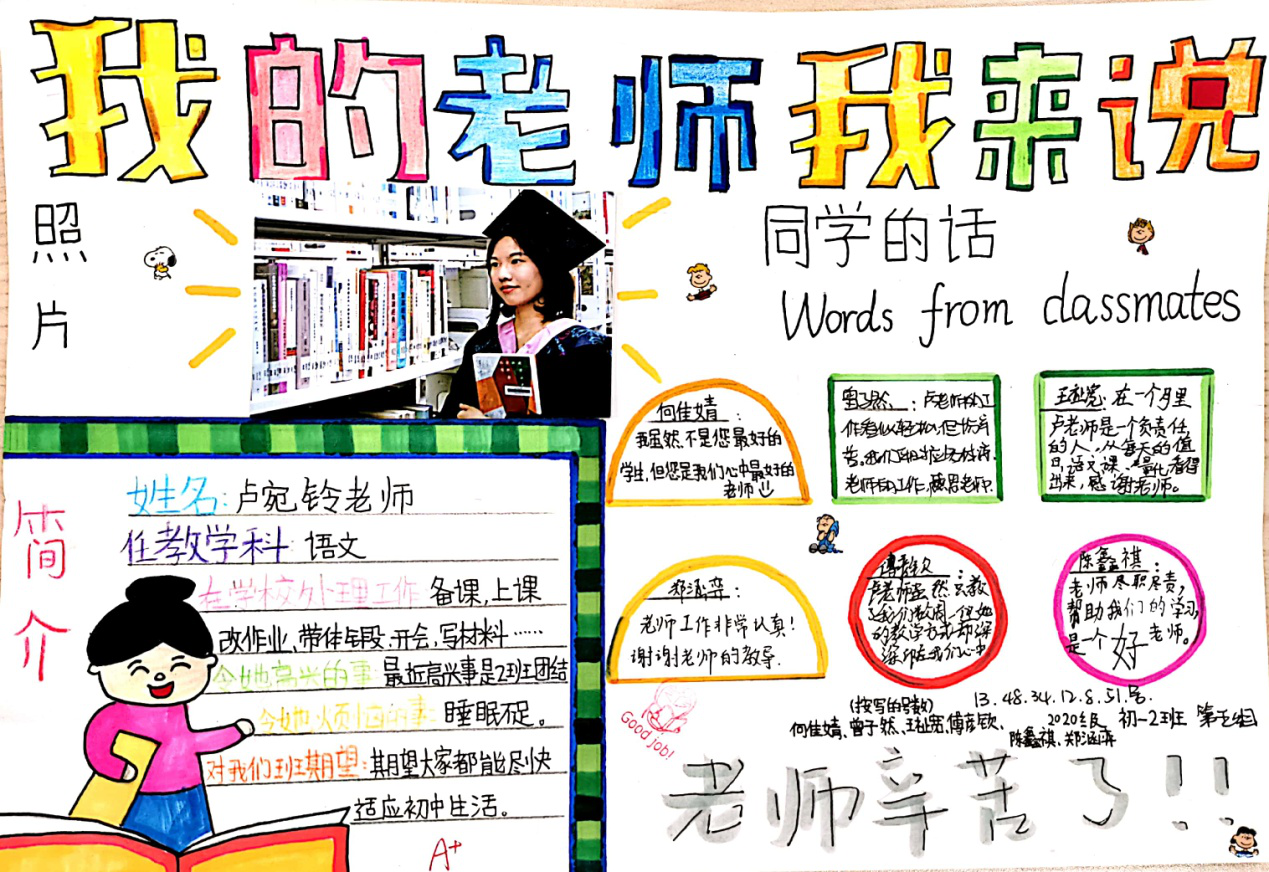 我的老师我来说
照片
同学的话
Words from classmates
简介
姓名:卢宛铃老师
任教学科:语文
在学校处理工作:备课,上课
改作业、带体锻、开会,写材料……
令她高兴的事:最近高兴事是2班团结
令她烦恼的事:睡眠不足。
对我们班期望:期望大家都能尽快
适应初中生活。
A+
何佳婧:
我虽然不是您最好的
学生,但您是我们心中最好的
老师
曾子然:卢老师的工
作看似轻松,但
老师的工作,感恩老师.
王祉宽:在一个月里
卢老师是一个负责任
的人,从每天的值
日,语文课、量化看得
出来,感谢老师。
郑涵弈:
老师工作非常认真!
谢谢老师的教导.
傅彦钦:
卢老师虽然只教
了我们数周,但她
的教学方式却深
深印在我们心中
陈鑫祺:
老师尽职尽责,
帮助我们的学习,
是一个好老师。
Good job!
(按写的号数) 13.48.34.12.8.51号.
何佳婧、曾子然、王祉宽、傅彦钦、
陈鑫祺、郑涵弈
2020级 初一2班
老师辛苦了!!